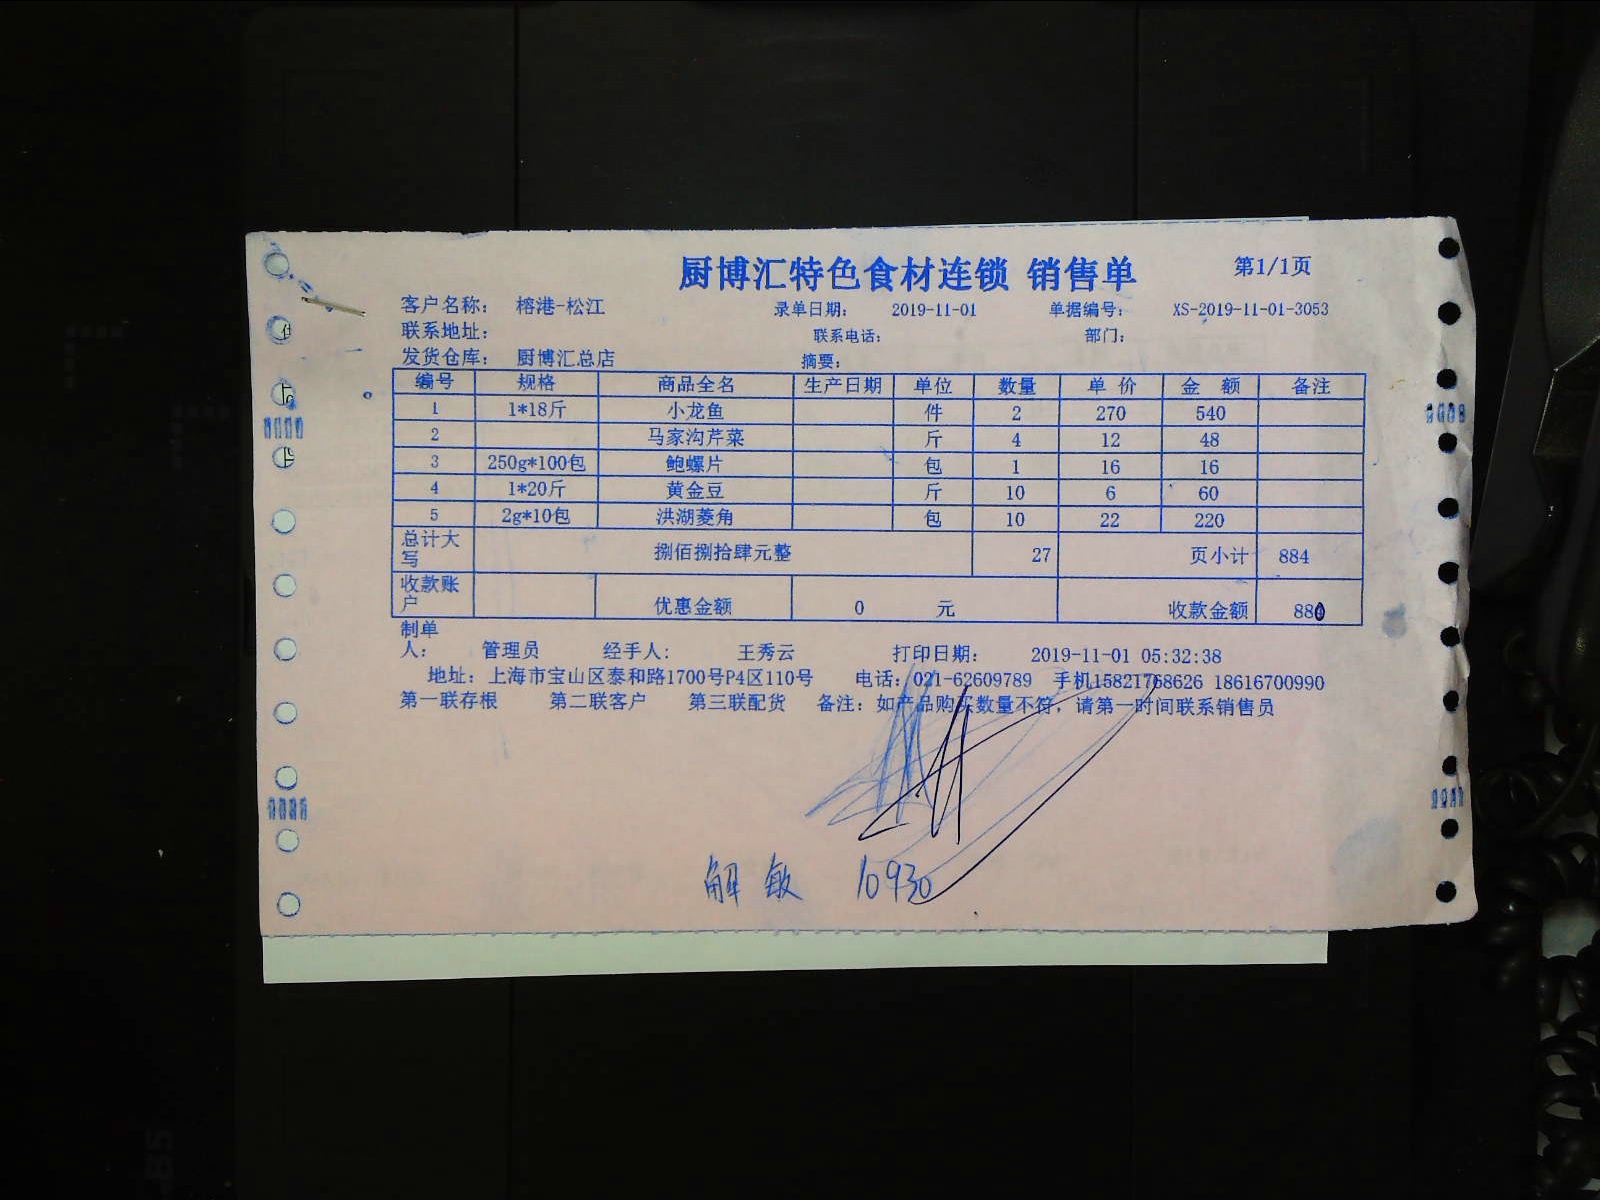 厨博汇特色食材连锁 销售单 第1/1页
客户名称: 榕港-松江 录单日期: 2019-11-01 单据编号: XS-2019-11-01-3053
联系地址: 联系电话: 部门:
发货仓库: 厨博汇总店 摘要:
编号 规格 商品全名 生产日期 单位 数量 单 价 金 额 备注
1 1*18斤 小龙鱼 件 2 270 540
2 马家沟芹菜 斤 4 12 48
3 250g*100包 鲍螺片 包 1 16 16
4 1*20斤 黄金豆 斤 10 6 60
5 2g*10包 洪湖菱角 包 10 22 220
总计大写 捌佰捌拾肆元整 27 页小计 884
收款账户 优惠金额 0 元 收款金额 880
制单人: 管理员 经手人: 王秀云 打印日期: 2019-11-01 05:32:38
地址: 上海市宝山区泰和路1700号P4区110号 电话: 021-62609789 手机15821768626 18616700990
第一联存根 第二联客户 第三联配货 备注: 如产品购买数量不符, 请第一时间联系销售员
解敏 10930